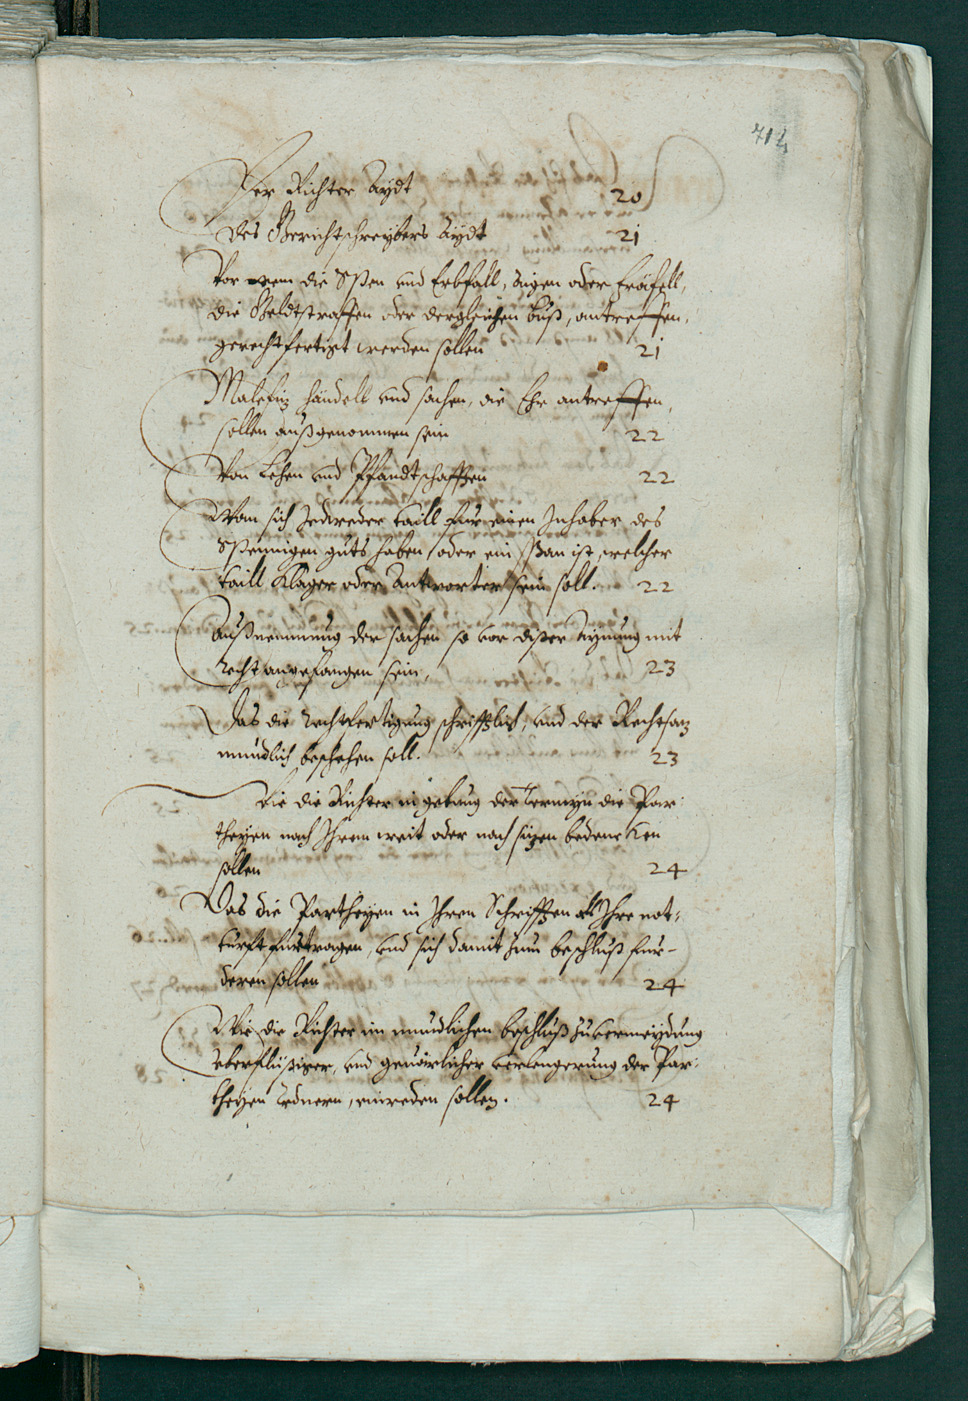 714
Der Richter Aydt 20
des Gerichtschreybers Aydt 21
Vor wem die Spen und Erbfall, Aigen oder fräfell,
die Geldtstraffen oder dergleichen Buß, antreffen,
gerechtfertigt werden sollen 21
Malefiz händell und sachen, die Ehr antreffen,
sollen außgenommen sein 22
Von Lehen und Pfandtschafften 22
Wan sich Jedweder taill für einen Inhaber des
Spennigen guts haben, oder ein Span ist, welcher
taill Kläger oder Antworter sein soll. 22
Außnemmung der sachen so vor diser Aynung mit
Recht angefangen sein, 23
Das die Rechtfertigung schrifftlich, und der Rechtsaz
mundlich beschehen soll. 23
Wie die Richter in gebung der Termyn die Par:
theyen nach Ihrem weit oder nach sizen bedencken
sollen 24
Das die Partheyen in Ihren Schrifften all Ihre not:
turfft furtragen, und sich damit zum beschluß fur-
deren sollen 24
Wie die Richter im mundlichen beschluß zuvermeydung
uberflüssiger, und gevärlicher verlengerung der Par:
theyen Rednern, einreden sollen. 24